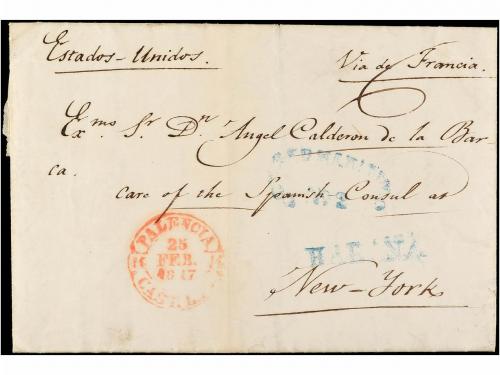 Estados-Unidos.
Via de Francia.
Exmo Sr Dn Angel Calderon de la Bar-
ca.
care of the Spanish-Consul at
New-York
PALENCIA
25
FEB.
1847
CAST.L.
HABANA